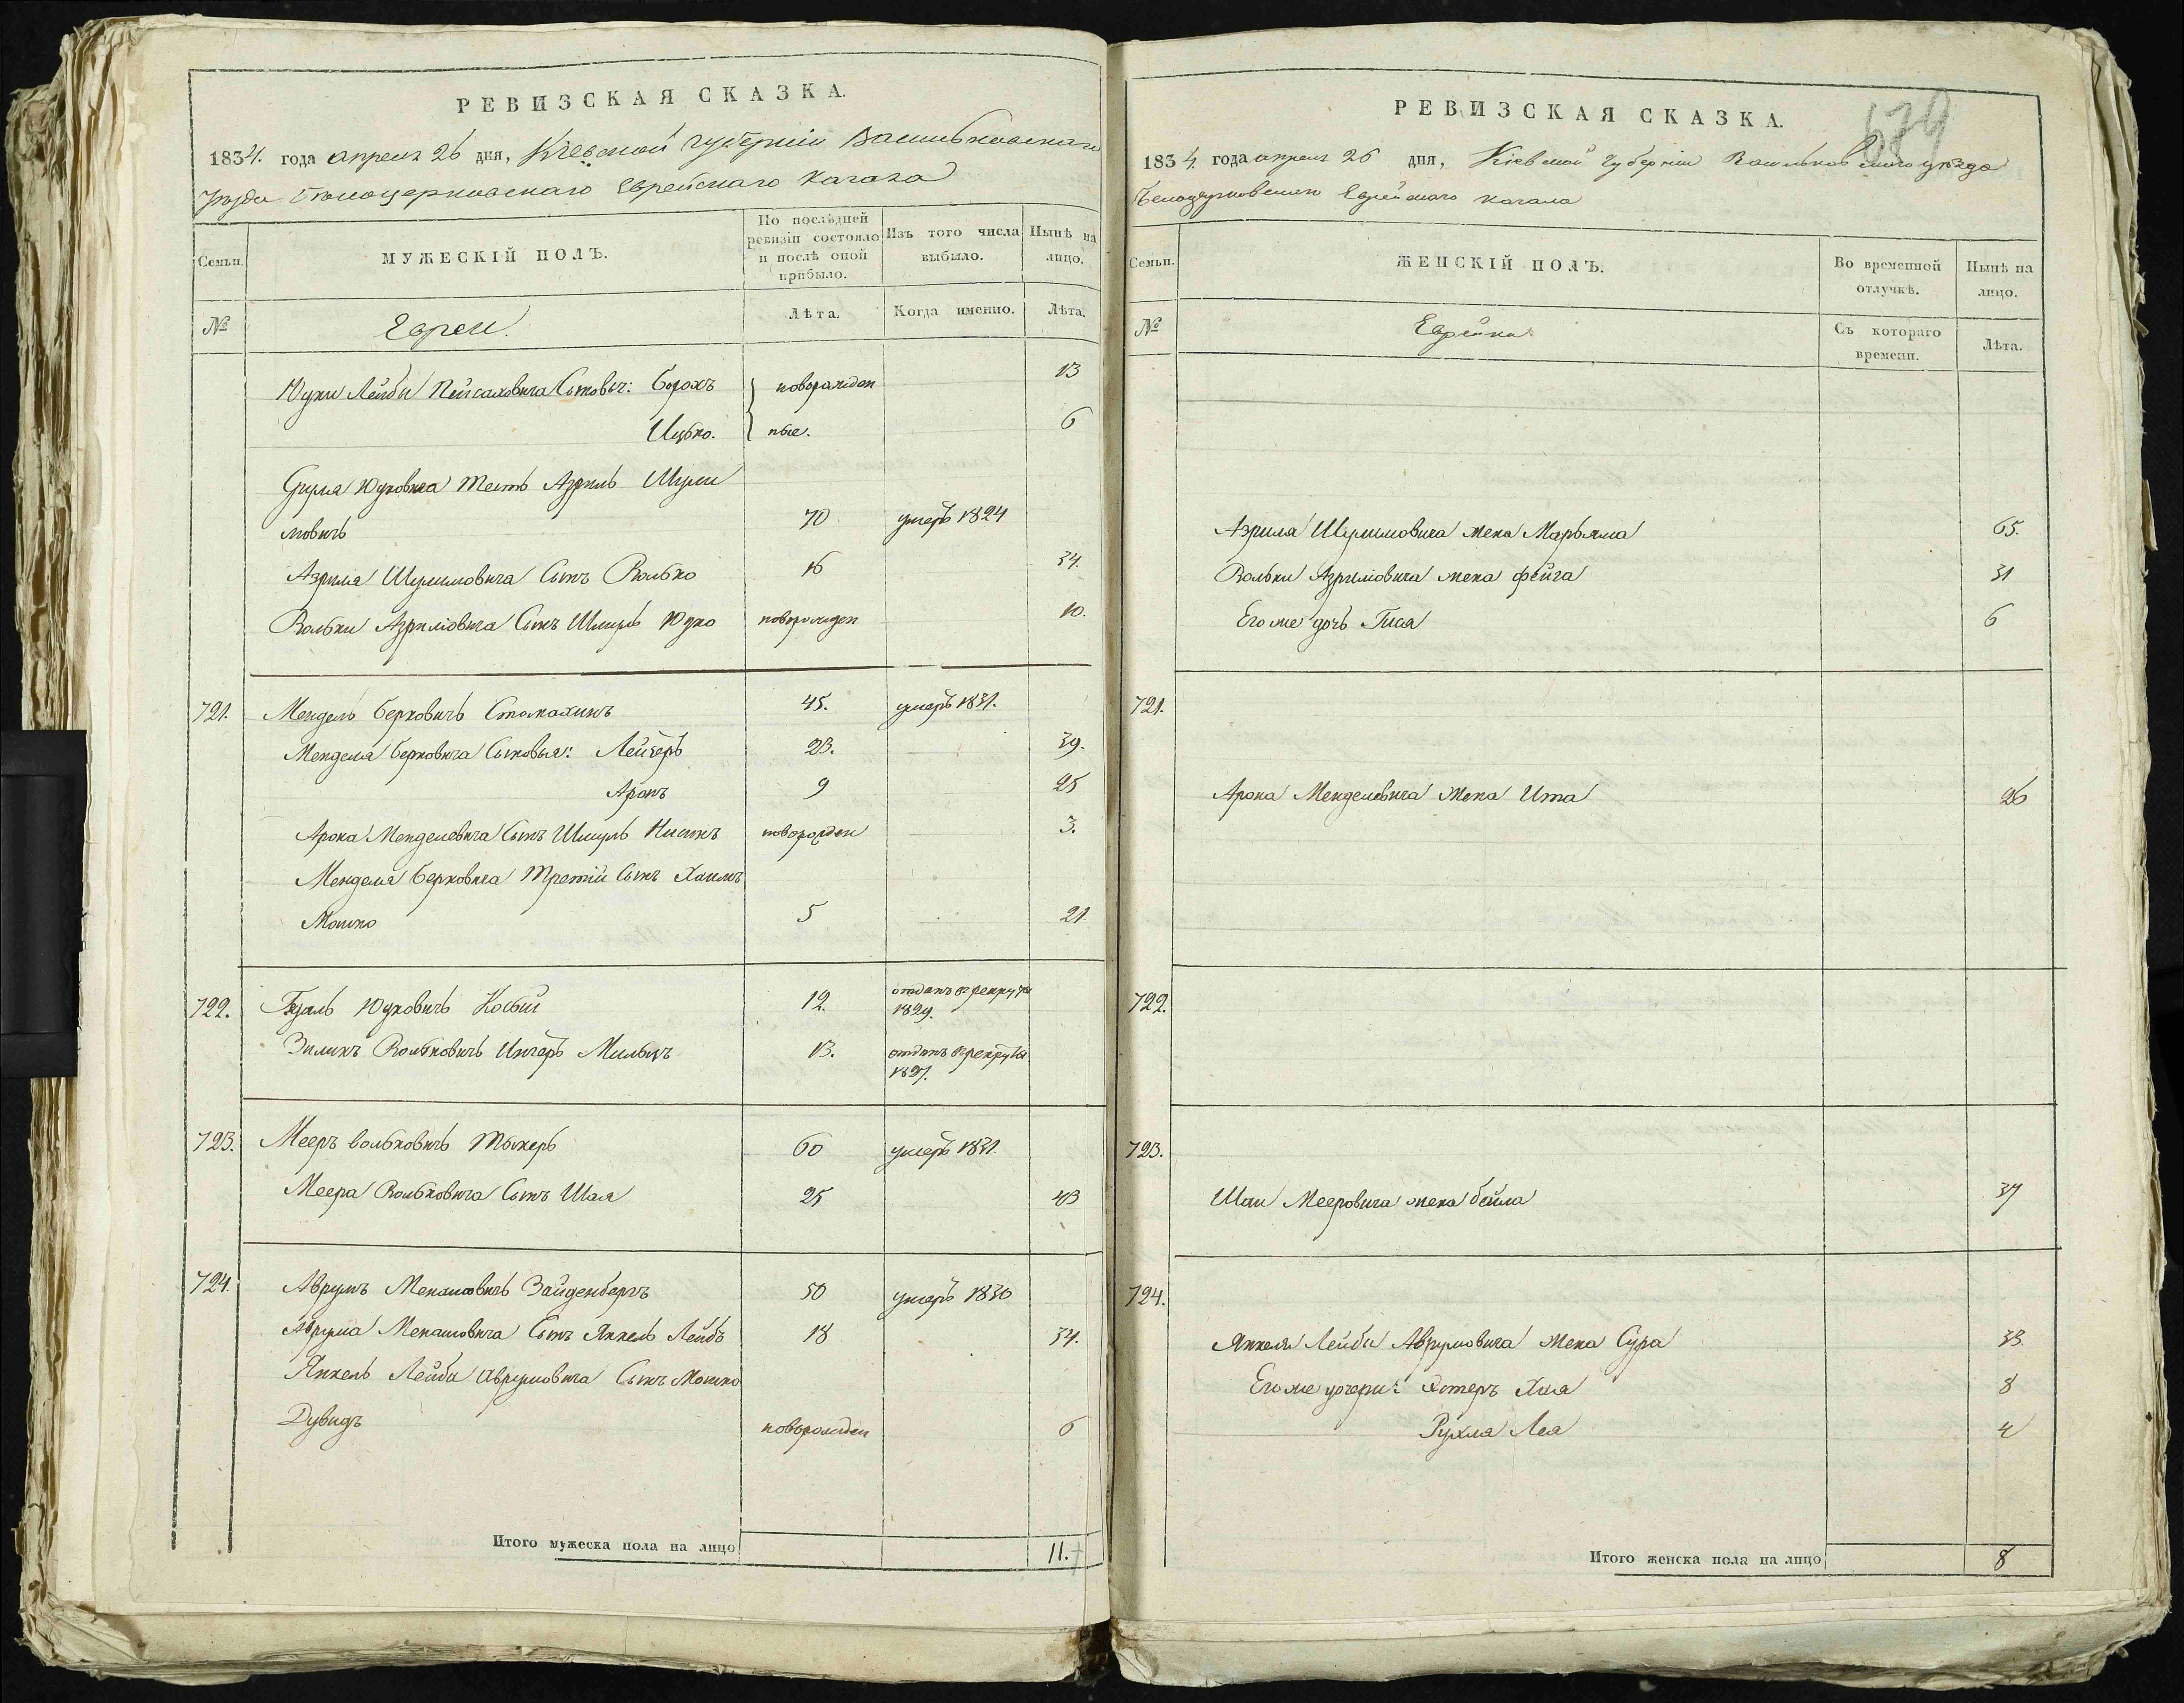 РЕВИЗСКАЯ СКАЗКА.
1834. года апреля 26 дня, Кіевской губерніи Васильковскаго
Уѣзда Белоцерковскаго Еврейскаго Кагала
Семьи.
МУЖЕСКІЙ ПОЛЪ.
По послѣдней ревизіи состояло и послѣ оной прибыло.
Изъ того числа выбыло.
Нынѣ на лицо.
№
Евреи.
Лѣта.
Когда именно.
Лѣта.
Юдки Лейбы Пейсаховича Сыновья: Борохъ новорожден 13
Ицько. ные. 6
Юдковича тесть Азриль Шули
мовичъ 70 умеръ 1824
Азриля Шулимовича Сынъ Волько 16 34.
Вольки Азрилiовича Сынъ Шмуль Юдко новорожден 10.
721. Мендель Берковичъ 45. умеръ 1831.
Менделя Берковича Сыновья: Лейзеръ 23. 39.
Аронъ 9 25
Арона Менделевича Сынъ Шмуль Нисинъ новорожден 3.
Менделя Берковича Третій Сынъ Хаимъ
Мошко 5 21
722. Юдковичъ Косый 12. отданъ в рекруты 1829.
Зиликъ Вольковичъ 13. отданъ в рекруты 1827.
723. Мееръ Вольковичъ Токеръ 60 умеръ 1831.
Меера Вольковича Сынъ Шая 25 43
724. Аврумъ Менашовичъ Зайденбергъ 50 умеръ 1830
Аврума Менашовича Сынъ Янкель Лейбъ 18 34.
Янкель Лейбы Аврумовича Сынъ Мошко
Дувидъ новорожден 6
Итого мужеска пола на лицо 11.
РЕВИЗСКАЯ СКАЗКА.
1834. года апреля 26 дня, Кіевской губерніи Васильковскаго уѣзда
Белоцерковскаго Еврейскаго кагала
Семьи.
ЖЕНСКІЙ ПОЛЪ.
Во временной отлучкѣ.
Нынѣ на лицо.
№
Еврейки.
Съ котораго времени.
Лѣта.
Азриля Шулимовича жена Марьяма 65.
Вольки Азрилiовича жена Фейга 31
Его же дочь Гися 6
721.
Арона Менделевича жена Ита 26
722.
723.
Шаи Мееровича жена Бейла 37
724.
Янкеля Лейбы Аврумовича жена Сура 33.
Его же дочери: Эстеръ Хая 8
Рухля Лея 4
Итого женска пола на лицо 8